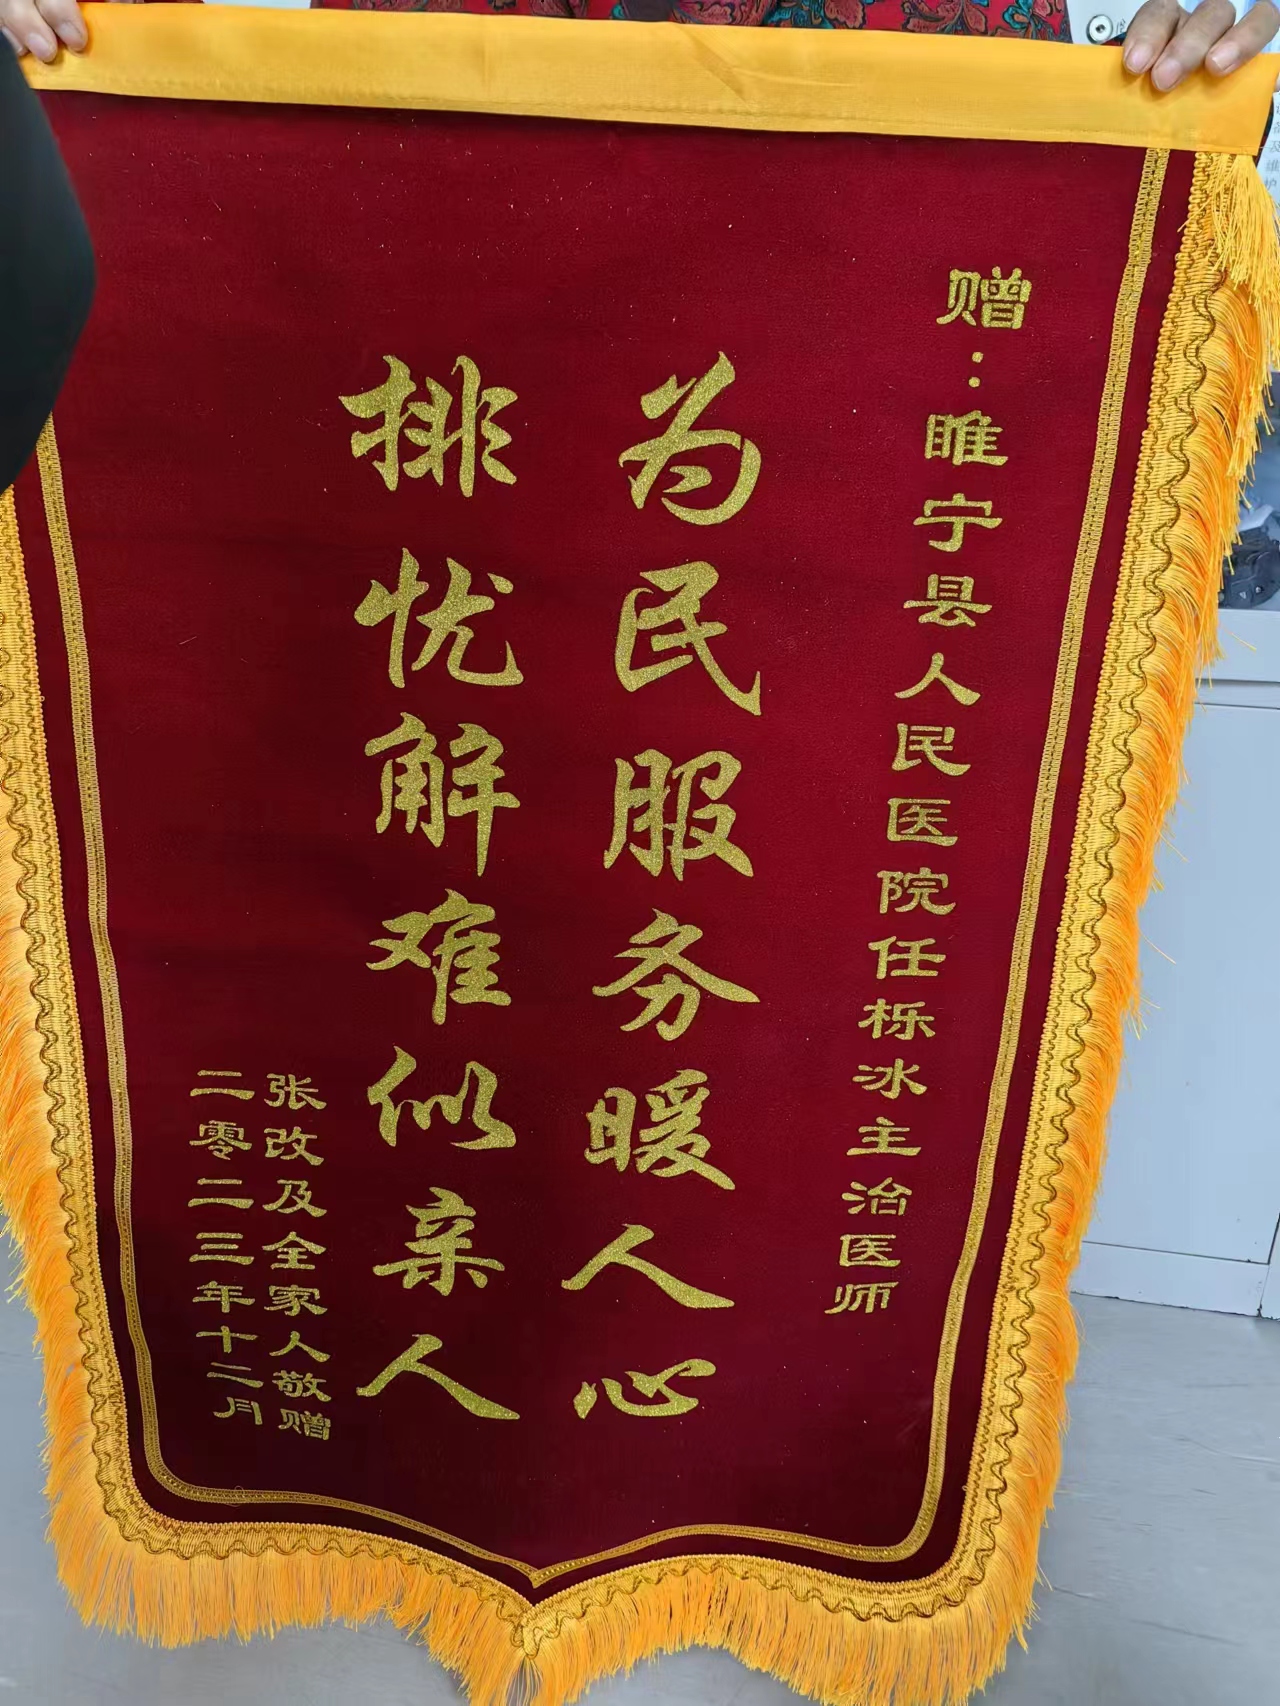 赠：睢宁县人民医院任栎冰主治医师
为民服务暖人心
排忧解难似亲人
张改及全家人敬赠
二零二三年十二月
及
维
护